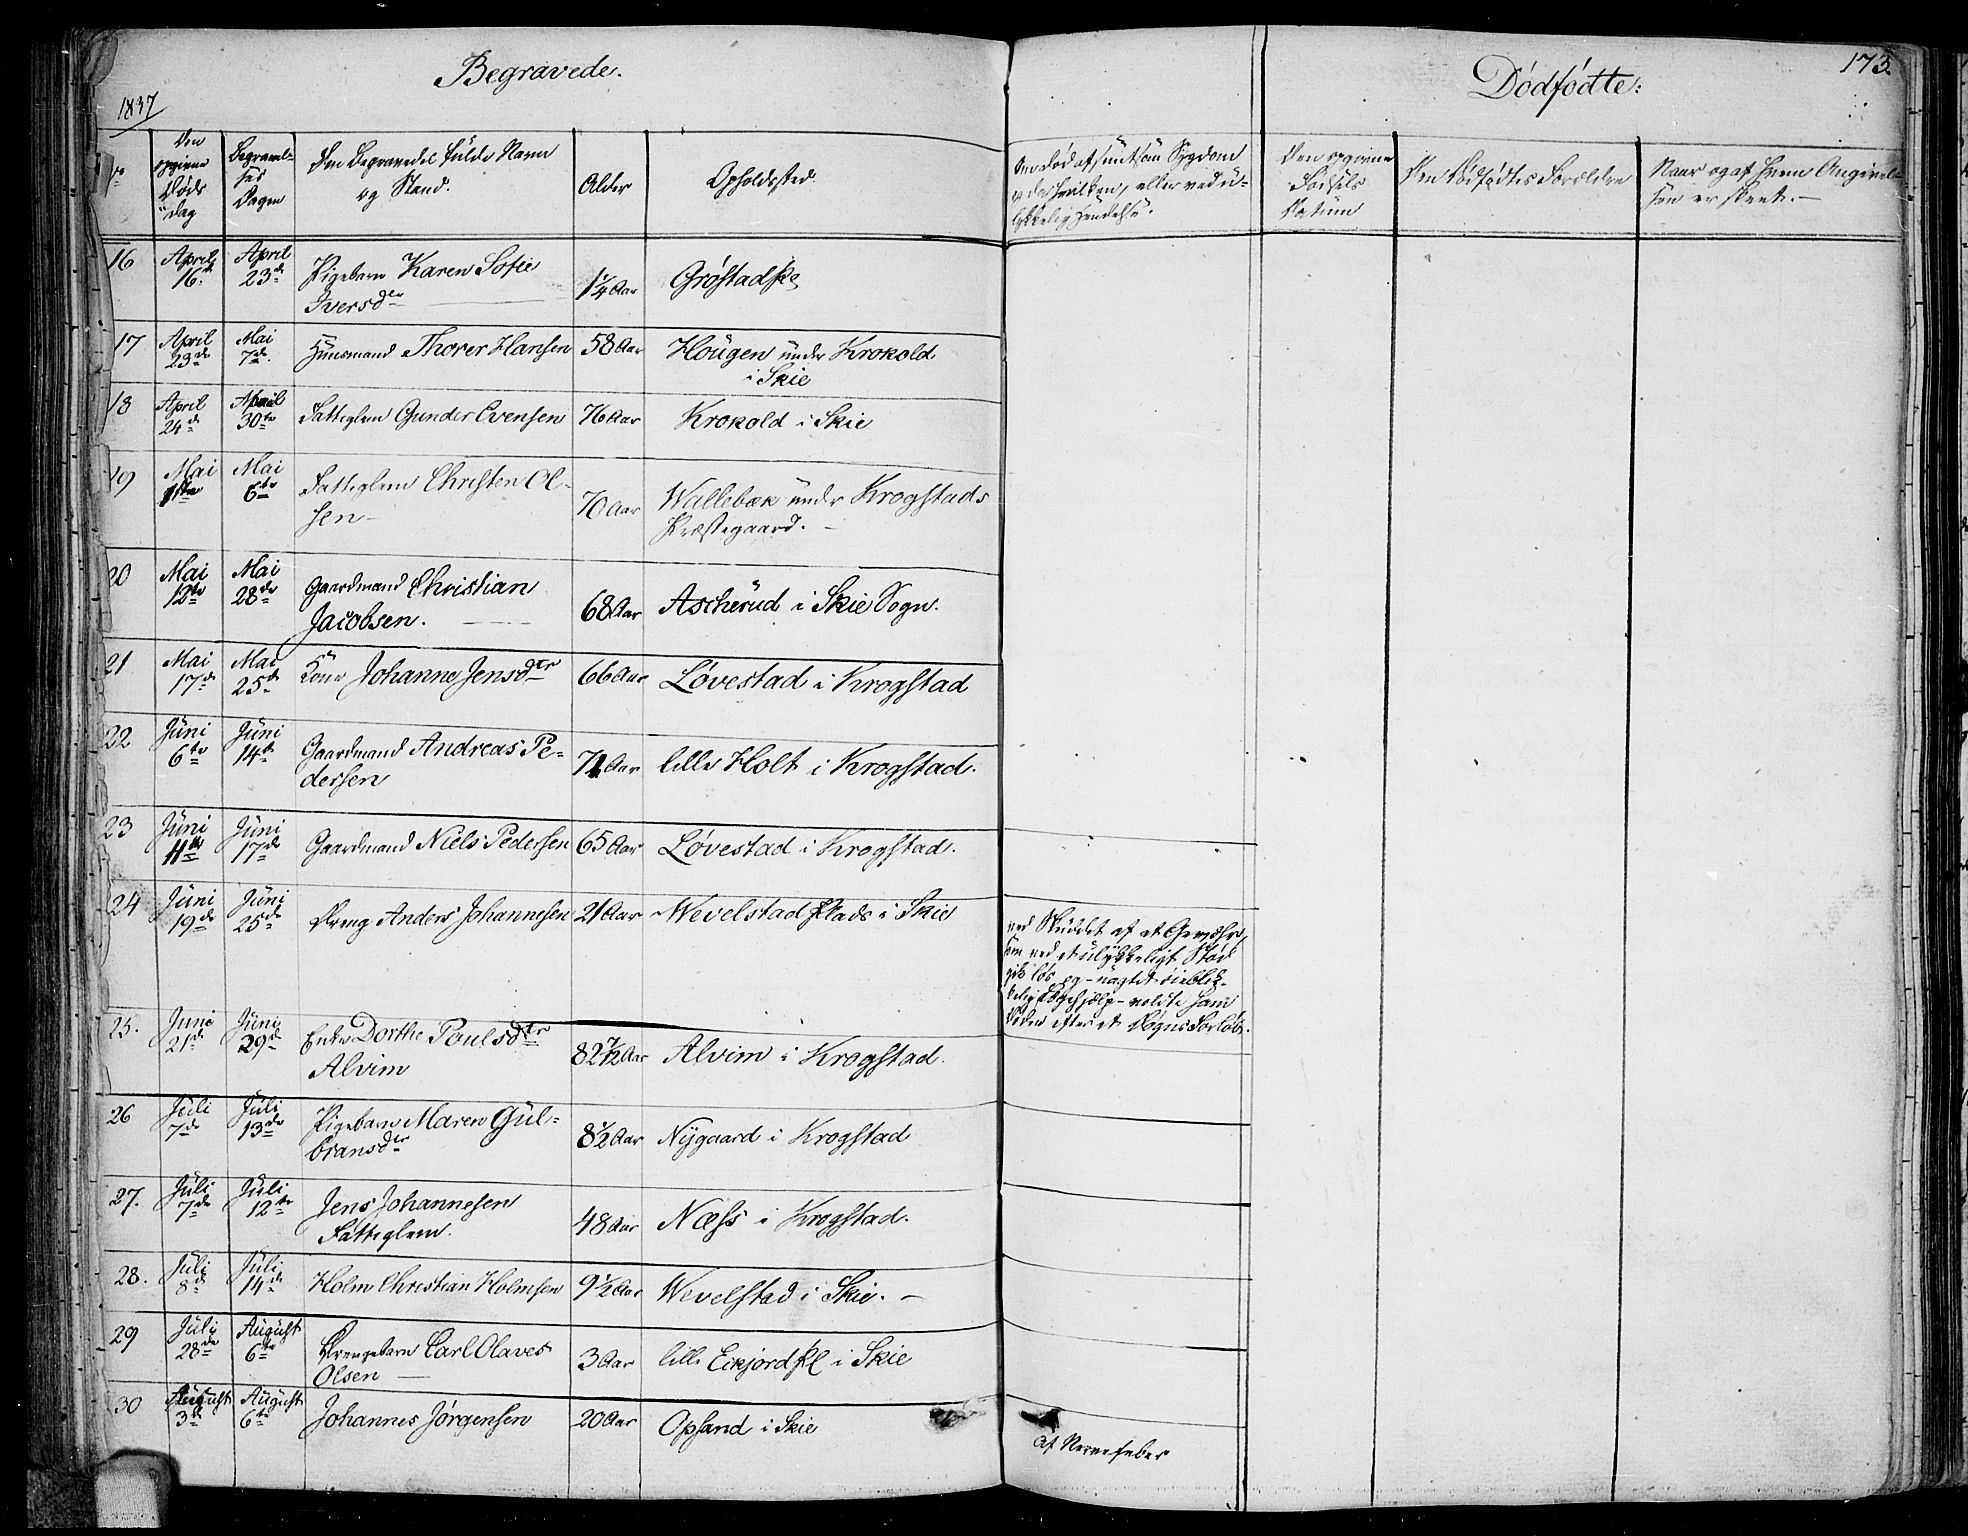 Begravede.
Dødfødte:
173.
1837
No
Den opgivne Døds dag
Begravelses Dagen
Den Begravedes fulde Navn og Stand.
Alder
Opholdssted.
Om død af smitsom Sygdom og da hvilken, eller ved ulykkelig Hændelse.
Den opgivne Fødsels Datum
Den Dødfødtes Forældre
Naar og af hvem Angivelsen er skeet.
16 April 16de April 23de Pigebarn Karen Sofie Iversdter 1 1/4 Aar Grøstad
17 April 23de Mai 7de Huusmand Thorer Hansen 58 Aar Hougen under Krokold i Skie
18 April 24de April 30te Fattiglem Gunder Evensen 76 Aar Krokold i Skie
19 Mai 1ste Mai 6te Fattiglem Christen Olsen 70 Aar Wallebæk under Krogstads Præstegaard.
20 Mai 12te Mai 28de Gaardmand Christian Jacobsen. 68 Aar Ascherud i Skie Sogn.
21 Mai 17de Mai 25de Kone Johanne Jensdter 66 Aar Løvestad i Krogstad
22 Juni 6te Juni 14de Gaardmand Andreas Pedersen 71 Aar lille Holt i Krogstad.
23 Juni 11te Juni 17de Gaardmand Niels Pedersen 65 Aar Løvestad i Krogstad.
24 Juni 19de Juni 25de Dreng Anders Johannesen 21 Aar Wevelstad Plads i Skie
ved Skuddet af et Gevæhr,
som ved et ulykkeligt Stød
gik løs og - uagtet øieblik-
kelig Lægehjælp - voldte ham
Døden efter et Døgns Forløb.
25. Juni 21de Juni 29de Enke Dorthe Poulsdter Alvim 82 7/12 Aar Alvim i Krogstad.
26 Juli 7de Juli 13de Pigebarn Maren Gulbransdter 8 1/2 Aar Nygaard i Krogstad
27. Juli 7de Juli 12te Jens Johannesen Fattiglem. 48 Aar Næss i Krogstad.
28. Juli 8de Juli 14de Holm Christian Holmsen 9 1/2 Aar Wevelstad i Skie.
29 Juli 28de August 6te Drengebarn Carl Olaves Olsen 3 Aar lille Eikjord Pl i Skie
30 August 3de August 6te Johannes Jørgensen 20 Aar Opsand i Skie
af Nervefeber